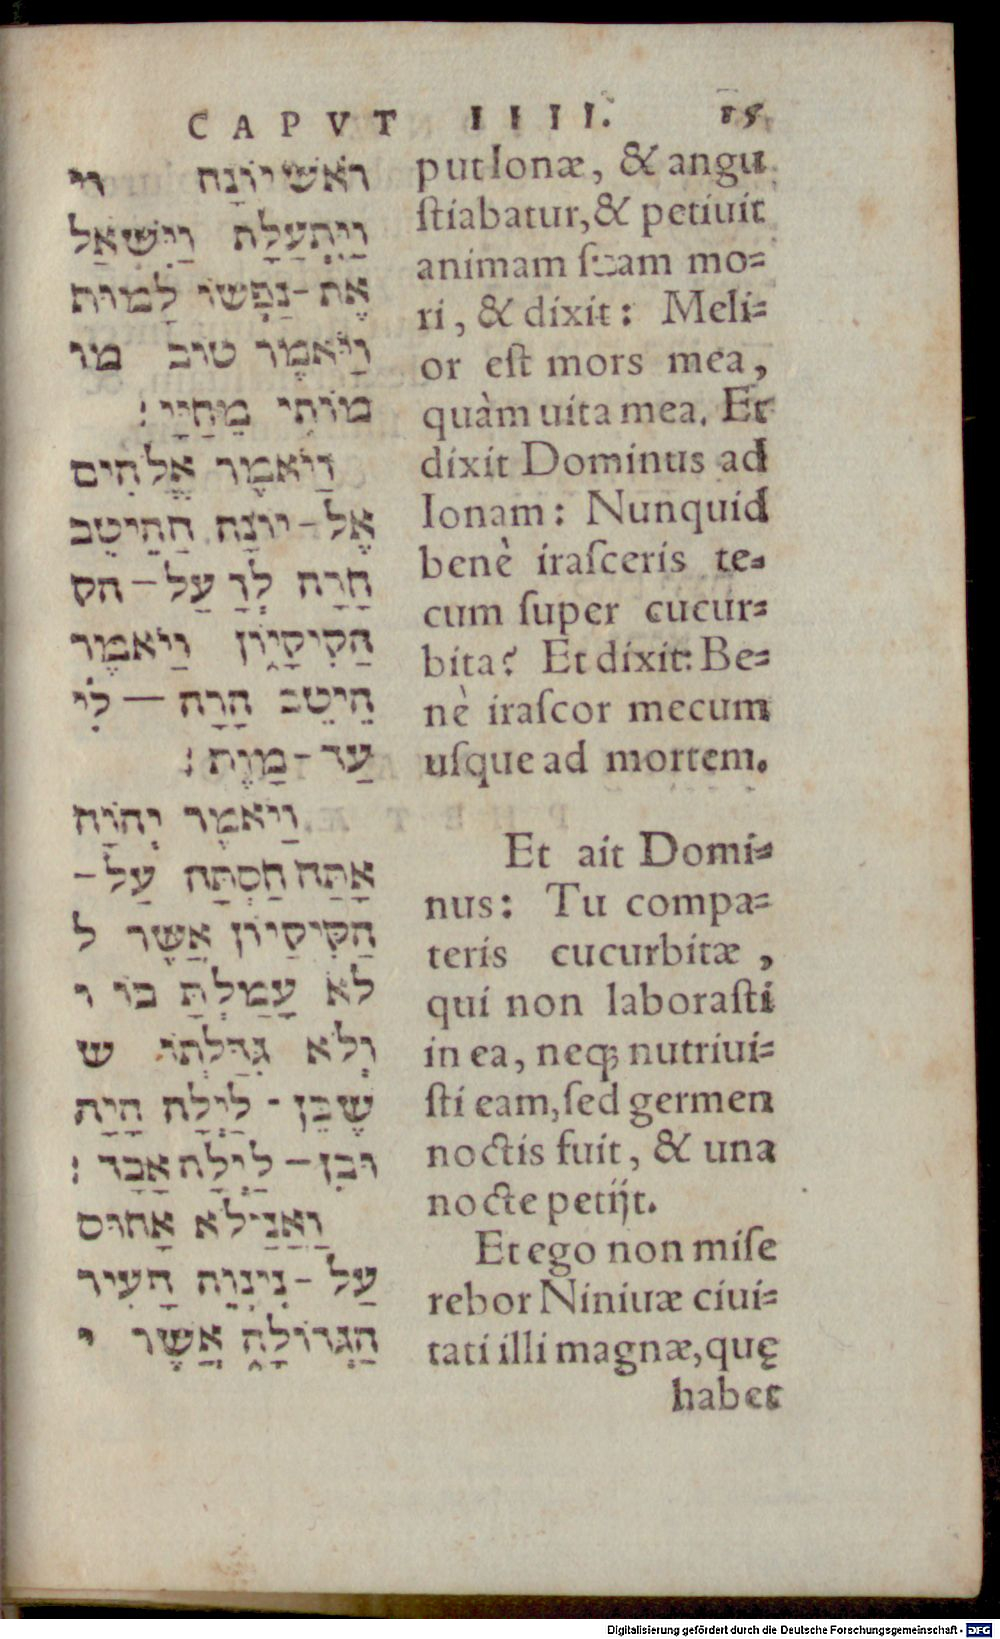 CAPVT IIII. 15
רֹאשׁ יוֹנָה וי
וַיִּתְעַלָּף וַיִּשְׁאַל
אֶת־נַפְשׁוֹ לָמוּת
וַיֹּאמֶר טוֹב מו
מוֹתִי מֵחַיָּי׃
וַיֹּאמֶר אֱלֹהִים
אֶל־יוֹנָה הַהֵיטֵב
חָרָה לְךָ עַל־הק
הַקִּיקָיוֹן וַיֹּאמֶר
הֵיטֵב חָרָה־לִי
עַד־מָוֶת׃
וַיֹּאמֶר יְהוָֹה
אַתָּה חַסְתָּ עַל־
הַקִּיקָיוֹן אֲשֶׁר ל
לֹא עָמַלְתָּ בּוֹ ו
וְלֹא גִדַּלְתּוֹ ש
שֶׁבִּן־לַיְלָה הָיָה
וּבִן־לַיְלָה אָבָד׃
וַאֲנִי לֹא אָחוּס
עַל־נִינְוֵה הָעִיר
הַגְּדוֹלָה אֲשֶׁר י
put Ionæ, & angu
ſtiabatur, & petiuit
animam ſuam mo=
ri, & dixit: Meli=
or eſt mors mea,
quàm uita mea. Et
dixit Dominus ad
Ionam: Nunquid
benè iraſceris te=
cum ſuper cucur=
bita? Et dixit: Be=
nè iraſcor mecum
uſque ad mortem.
Et ait Domi=
nus: Tu compa=
teris cucurbitæ,
qui non laboraſti
in ea, neq; nutriui=
ſti eam, ſed germen
noctis fuit, & una
nocte petijt.
Et ego non miſe
rebor Niniuæ ciui=
tati illi magnæ, quę
habet
Digitalisierung gefördert durch die Deutsche Forschungsgemeinschaft - DFG